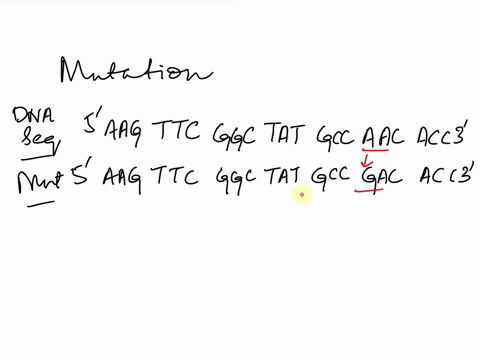 Mutation
DNA
Seq 5' AAG TTC GGC TAT GCC AAC ACC 3'
Mut 5' AAG TTC GGC TAT GCC GAC ACC 3'